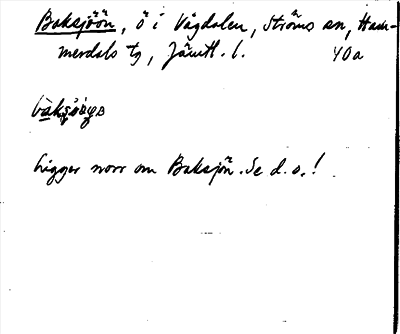 Baksjöön, ö i Vågdalen, Ströms sn, Ham-
merdals tg, Jämtl. l. 40a
Ligger norr om Baksjön. Se d. o.!